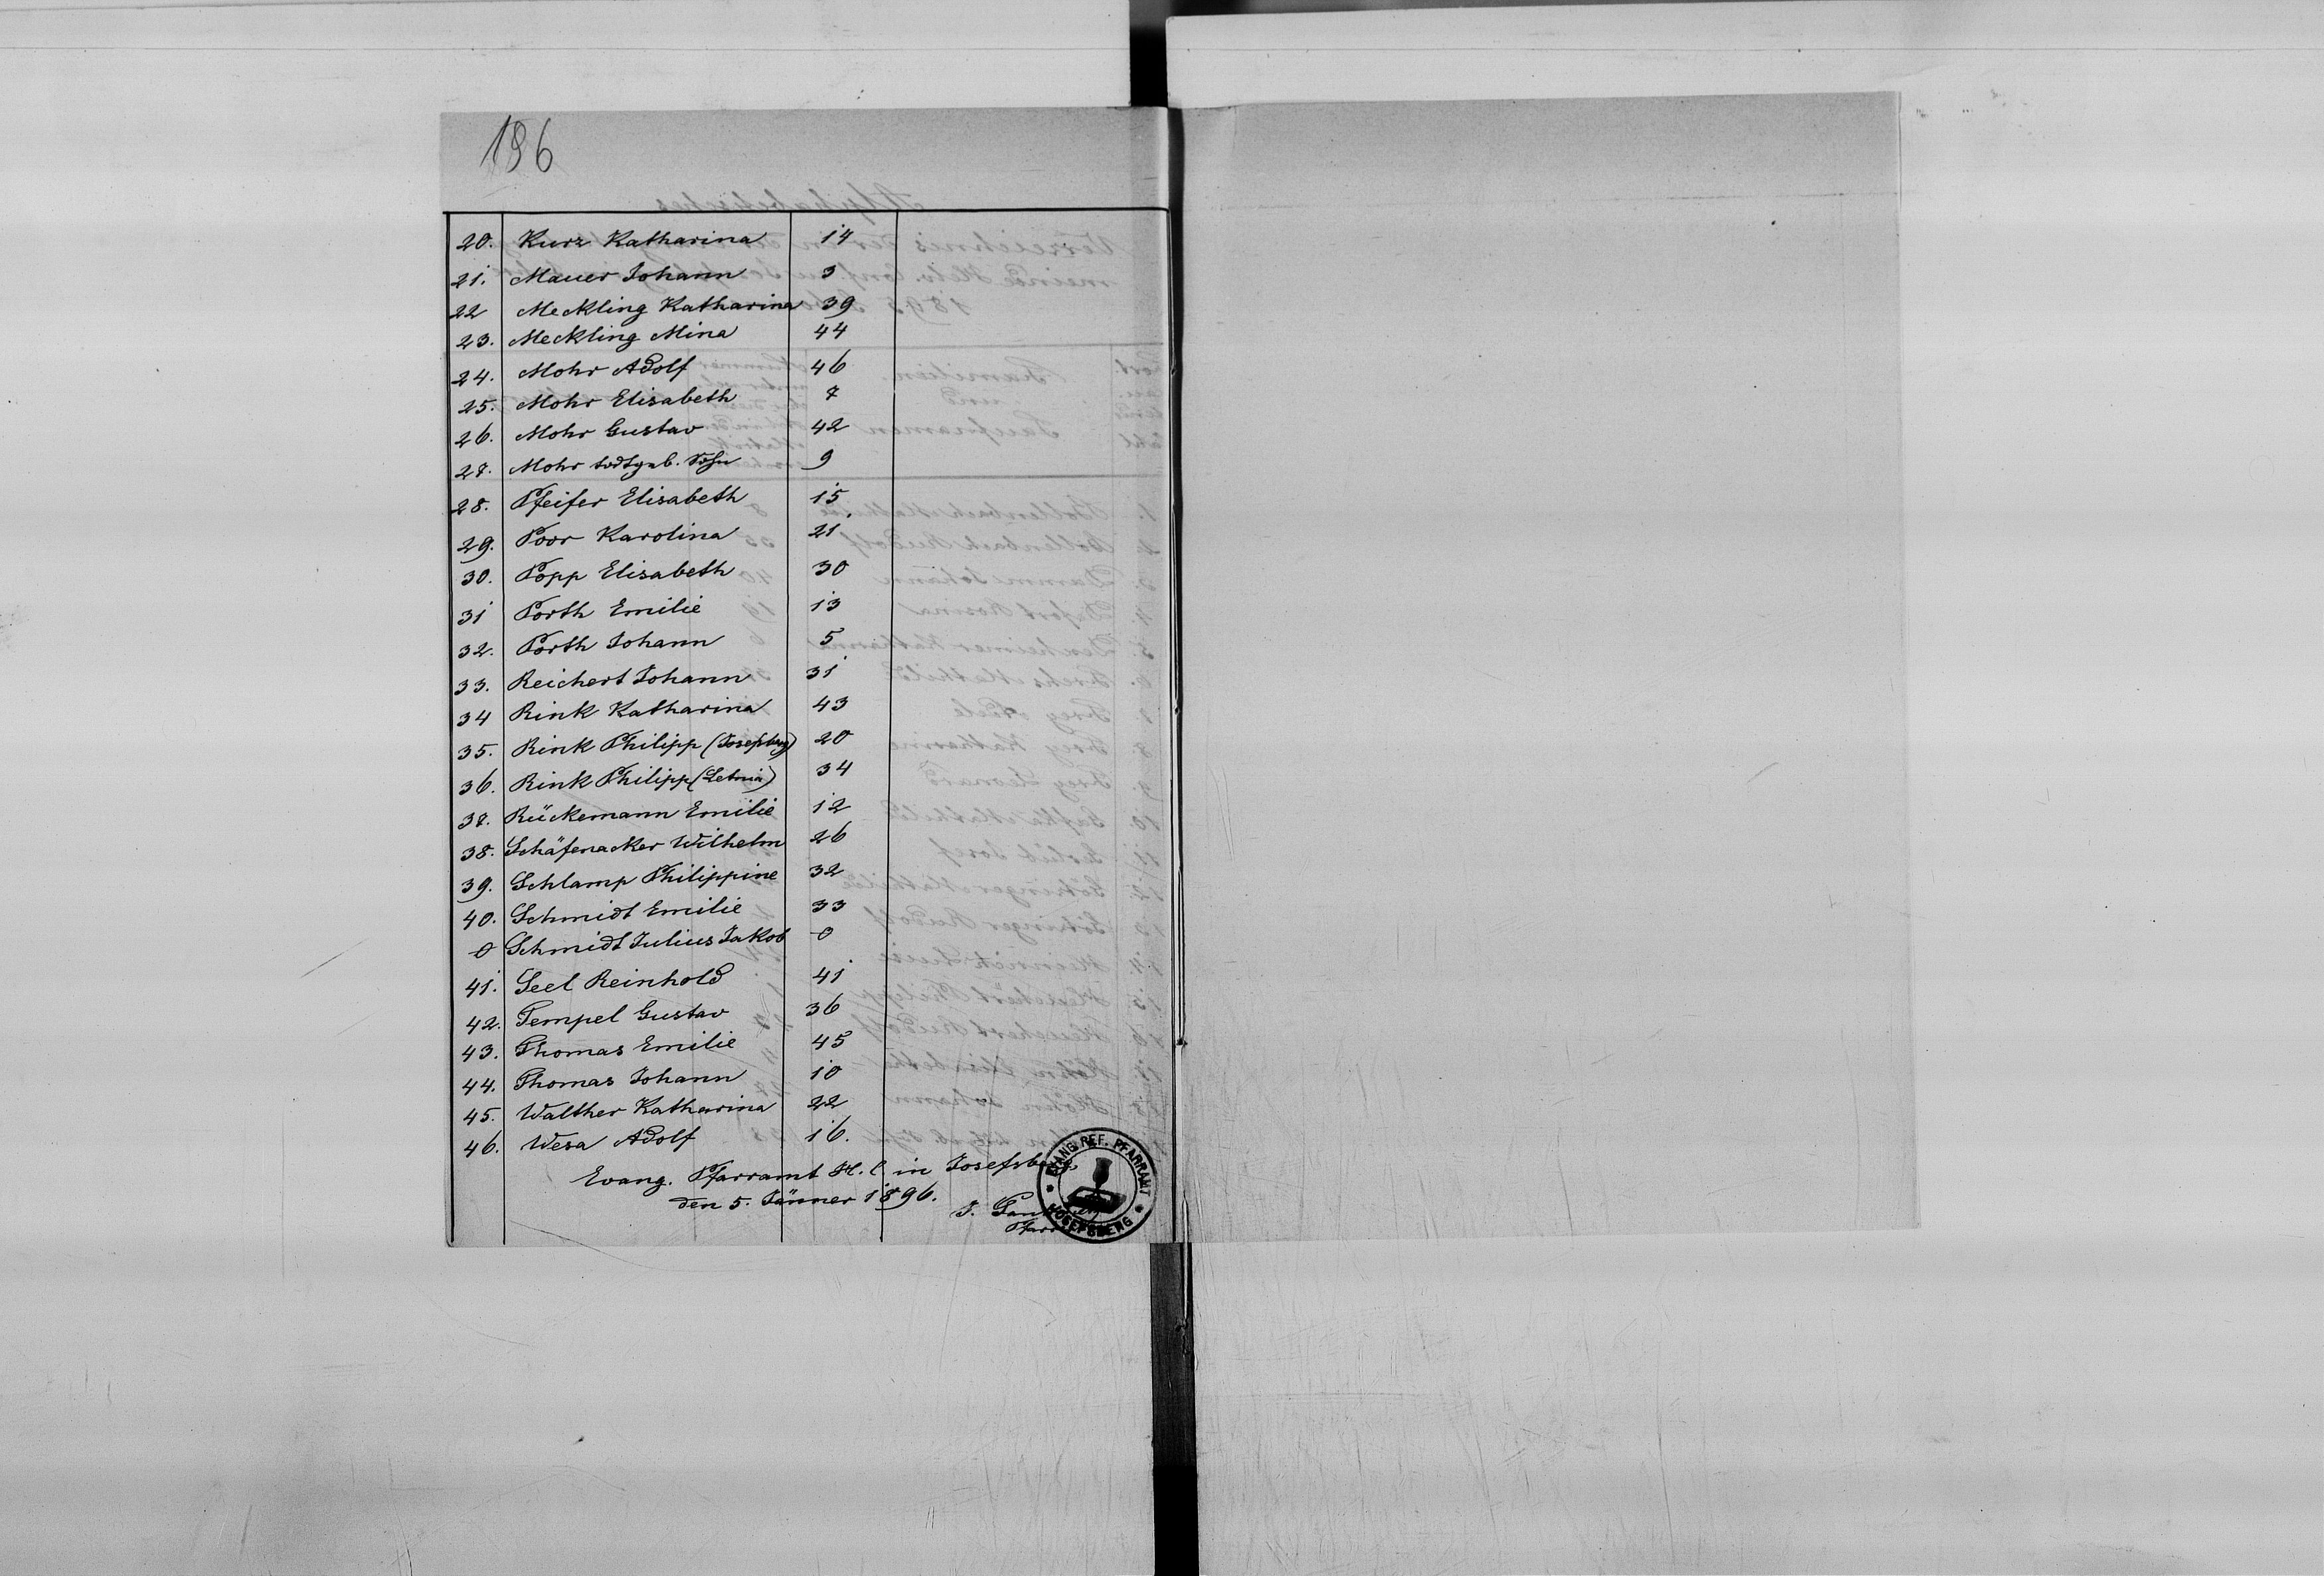 196
20. Kurz Katharina 14
21. Mauer Johann 3
22 Meckling Katharina 39
23. Meckling Mina 44
24. Mohr Adolf 46
25. Mohr Elisabeth 7
26. Mohr Gustav 42
27. Mohr todtgeb. Sohn 9
28. Pfeifer Elisabeth 15
29. Poor Karolina 21
30. Popp Elisabeth 30
31 Porth Emilie 13
32. Porth Johann 5
33. Reichert Johann 31
34 Rink Katharina 43
35. Rink Philipp (Josephbg) 20
36. Rink Philipp (Letnia) 34
37. Rückemann Emilie 12
38. Schäfenacker Wilhelm 26
39. Schlamp Philippine 32
40. Schmidt Emilie 33
0 Schmidt Julius Jakob 0
41. Seel Reinhold 41
42. Tempel Gustav 36
43. Thomas Emilie 45
44. Thomas Johann 10
45. Walther Katharina 22
46. Wesa Adolf 16.
Evang. Pfarramt H. C. in Josefsberg,
den 5. Jänner 1896.
J.
EVANG. REF. PFARRAMT
JOSEFSBERG